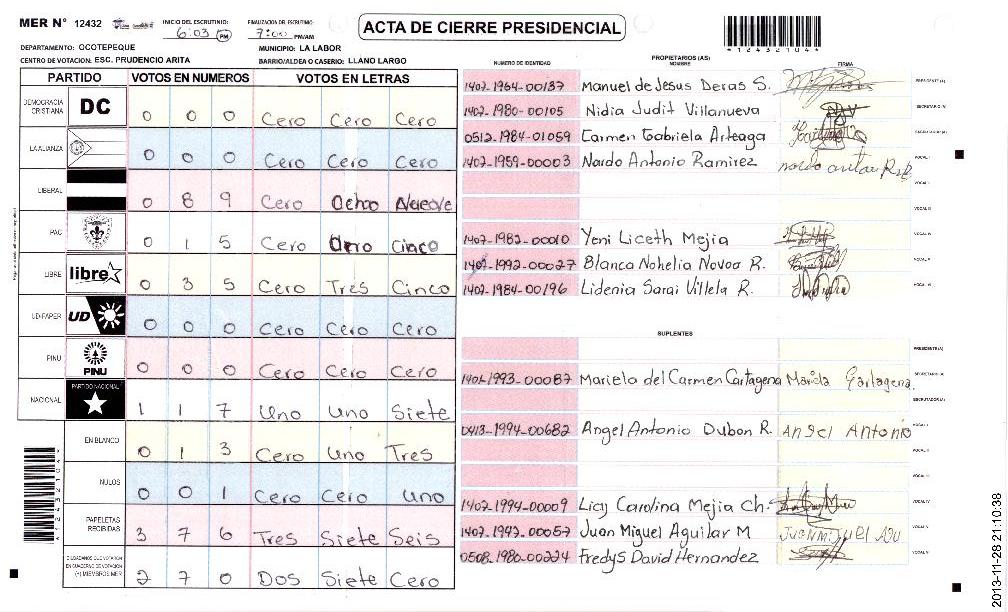 MER N° 12432 INICIO DEL ESCRUTINIO: 6:03 PM FINALIZACION DEL ESCRUTINIO: 7:00 PM/AM
ACTA DE CIERRE PRESIDENCIAL
*12432104*
DEPARTAMENTO: OCOTEPEQUE MUNICIPIO: LA LABOR
CENTRO DE VOTACION: ESC. PRUDENCIO ARITA BARRIO/ALDEA O CASERIO: LLANO LARGO
PARTIDO VOTOS EN NUMEROS VOTOS EN LETRAS
DEMOCRACIA CRISTIANA DC 0 0 0 Cero Cero Cero
LA ALIANZA 0 0 0 Cero Cero Cero
LIBERAL 0 8 9 Cero Ocho Nueve
PAC 0 1 5 Cero Cinco
LIBRE libre 0 3 5 Cero Tres Cinco
UD-FAPER UD 0 0 0 Cero Cero Cero
PINU PINU 0 0 0 Cero Cero Cero
NACIONAL PARTIDO NACIONAL 1 1 7 Uno Uno Siete
EN BLANCO 0 1 3 Cero Uno Tres
NULOS 0 0 1 Cero Cero Uno
PAPELETAS RECIBIDAS 3 7 6 Tres Siete Seis
CIUDADANOS QUE VOTARON EN CUADERNO DE VOTACION (+) MIEMBROS MER 2 7 0 Dos Siete Cero
PROPIETARIOS (AS)
NUMERO DE IDENTIDAD NOMBRE FIRMA
1402-1964-00137 Manuel de Jesus Deras S. PRESIDENTE (A)
1402-1980-00105 Nidia Judit Villanueva SECRETARIO (A)
0512-1984-01059 Carmen Gabriela Arteaga ESCRUTADOR (A)
1402-1959-00003 Nardo Antonio Ramirez VOCAL I
VOCAL II
VOCAL III
1402-1982-00010 Yeni Liceth Mejia VOCAL IV
1402-1992-00027 Blanca Nohelia Novoa R. VOCAL V
1402-1984-00196 Lidenia Sarai Villela R. VOCAL VI
SUPLENTES
PRESIDENTE (A)
1401-1993-00087 Mariela del Carmen Cartagena Mariela Cartagena. SECRETARIO (A)
ESCRUTADOR (A)
0413-1994-00682 Angel Antonio Dubon R. Angel Antonio VOCAL I
VOCAL II
VOCAL III
1402-1994-00009 Licy Carolina Mejia Ch. VOCAL IV
1402-1947-00057 Juan Miguel Aguilar M VOCAL V
0508-1986-00224 Fredys David Hernandez VOCAL VI
2013-11-28 21:10:38